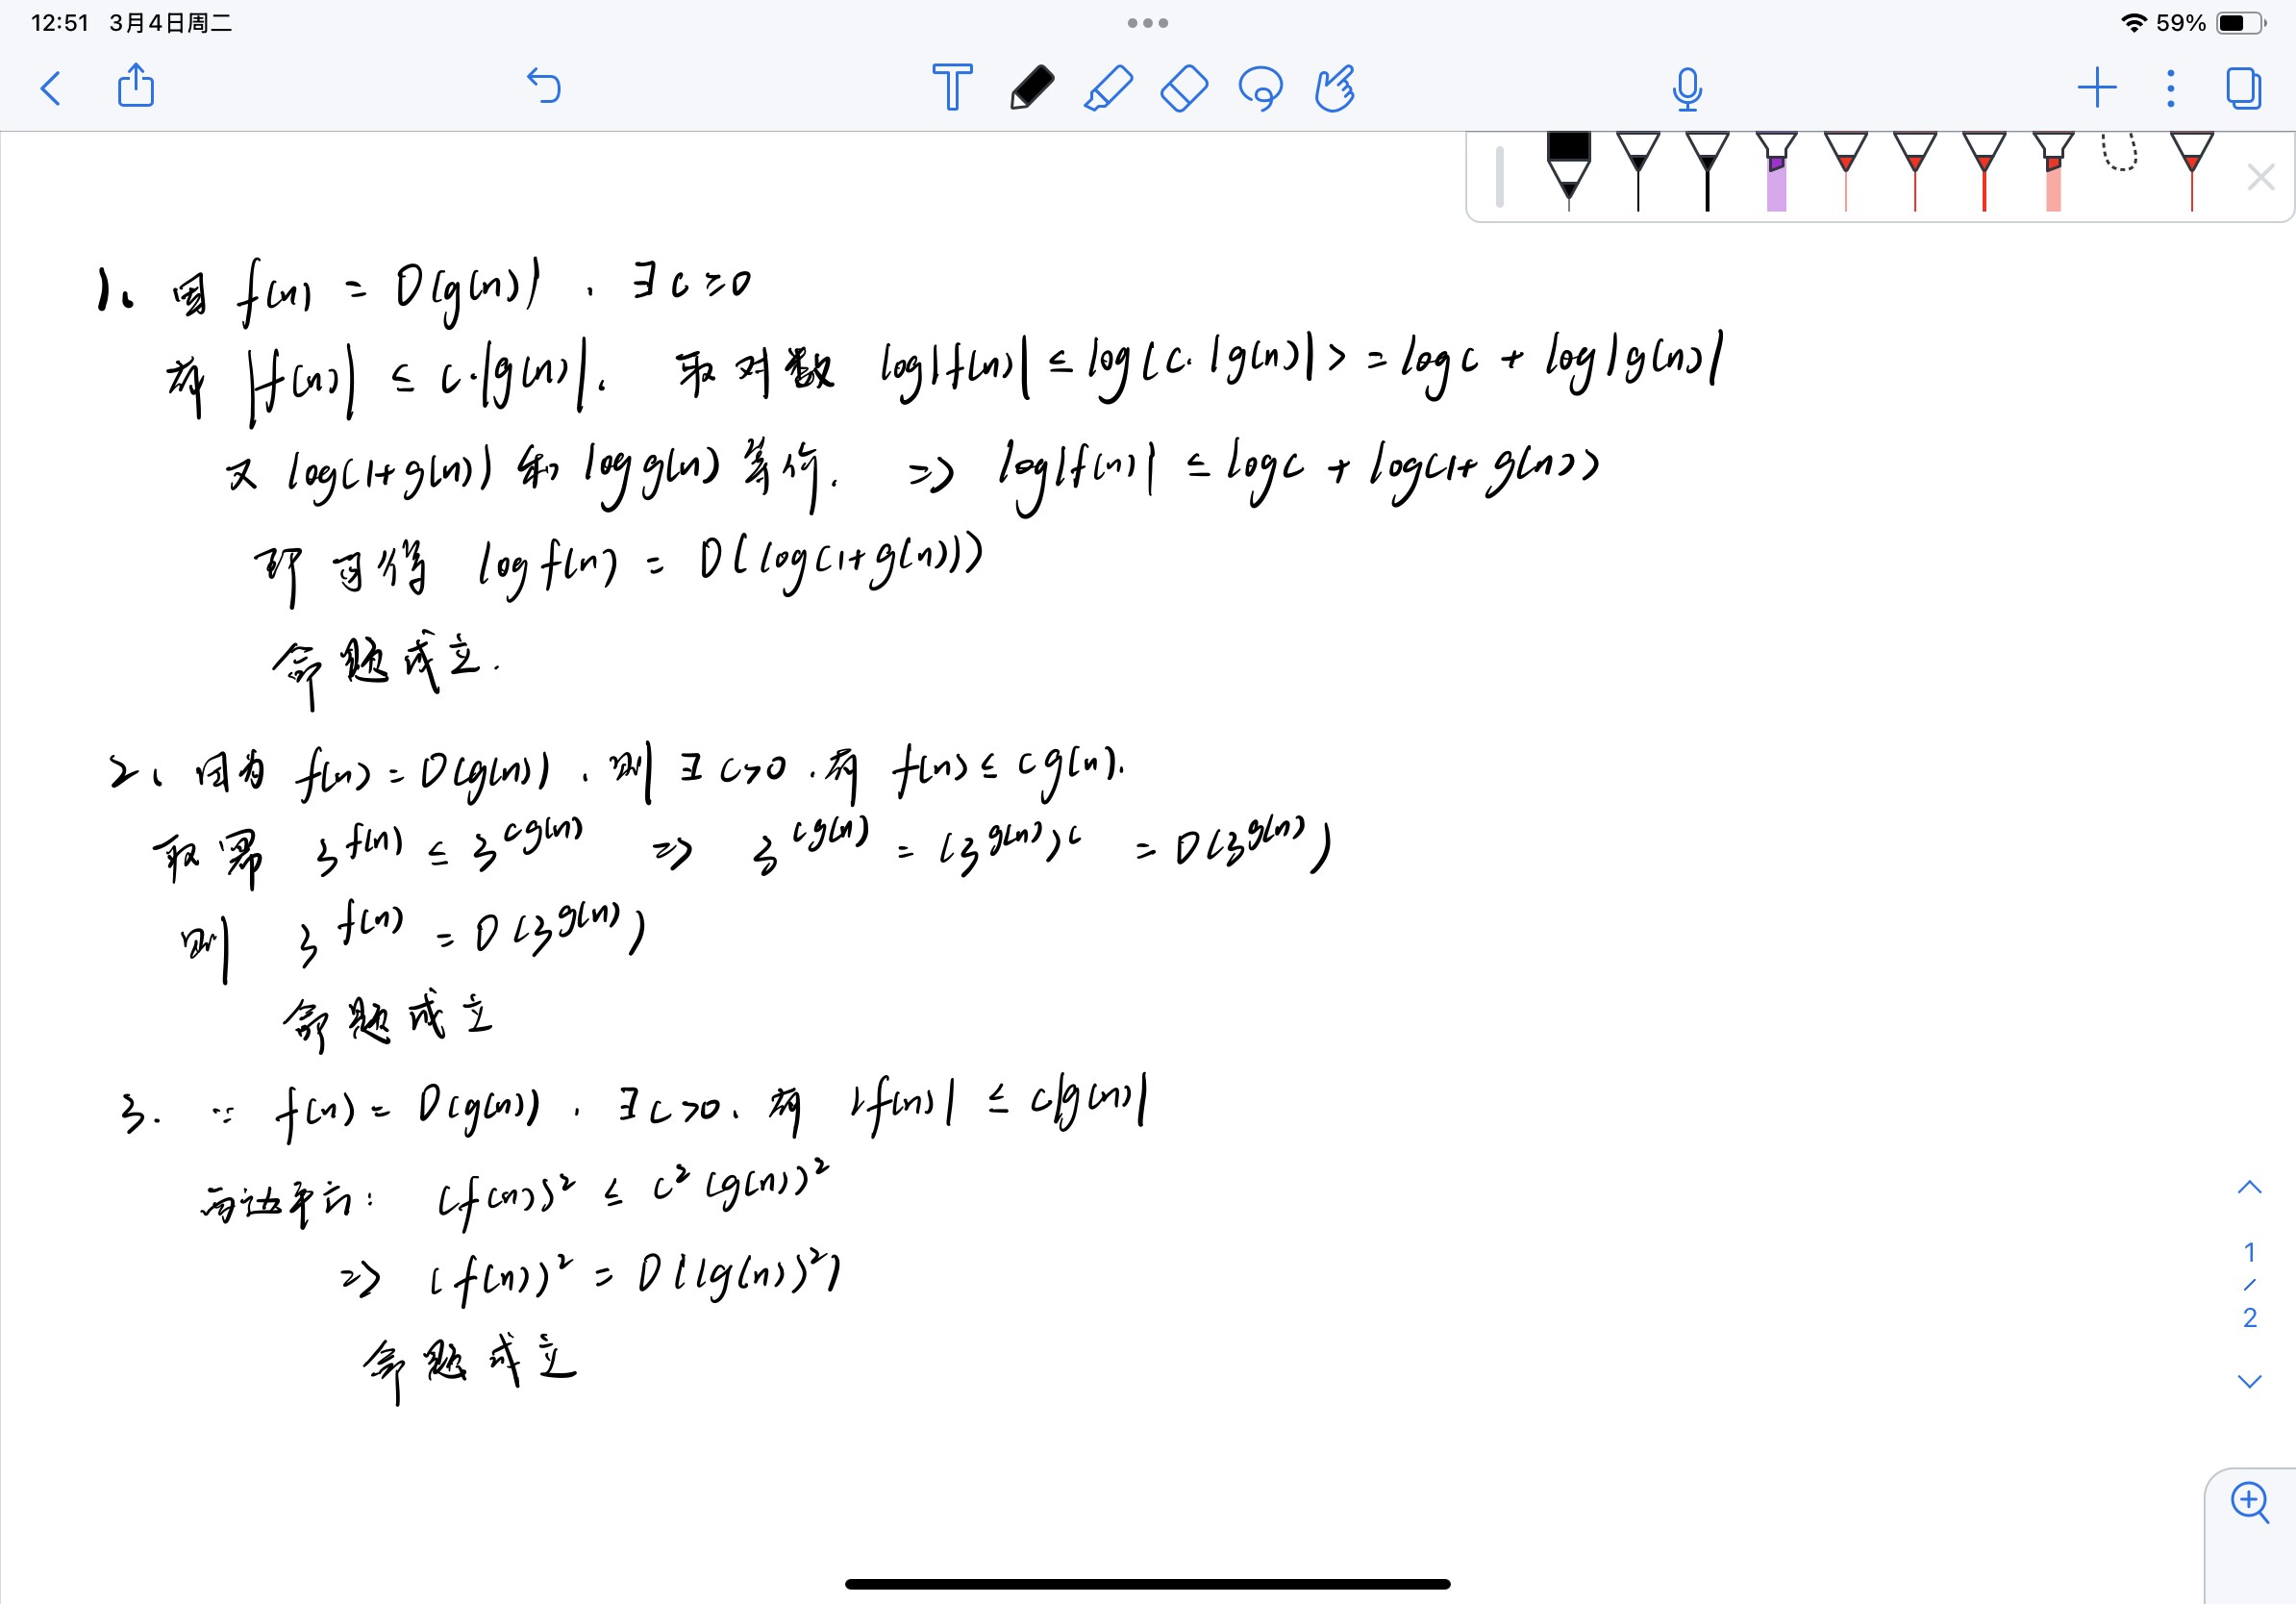 12:51 3月4日周二
59%
1、因 f(n) = O(g(n)), ∃ c≥0
有 |f(n)| ≤ c·|g(n)|. 取对数 log|f(n)| ≤ log(c·|g(n)|) = log c + log|g(n)|
又 log(1+g(n)) 和 log g(n) 等价. => log|f(n)| ≤ log c + log(1+g(n))
即可得 log f(n) = O(log(1+g(n)))
命题成立.
2、因为 f(n) = O(g(n)), 则 ∃ c>0, 有 f(n) ≤ cg(n).
取幂 3^f(n) ≤ 3^cg(n) => 3^cg(n) = (3^g(n))^c = O(3^g(n))
则 3^f(n) = O(3^g(n))
命题成立
3. ∵ f(n) = O(g(n)), ∃ c>0, 有 |f(n)| ≤ c|g(n)|
两边平方: (f(n))² ≤ c² (g(n))²
=> (f(n))² = O((g(n))²)
命题成立
1
/
2